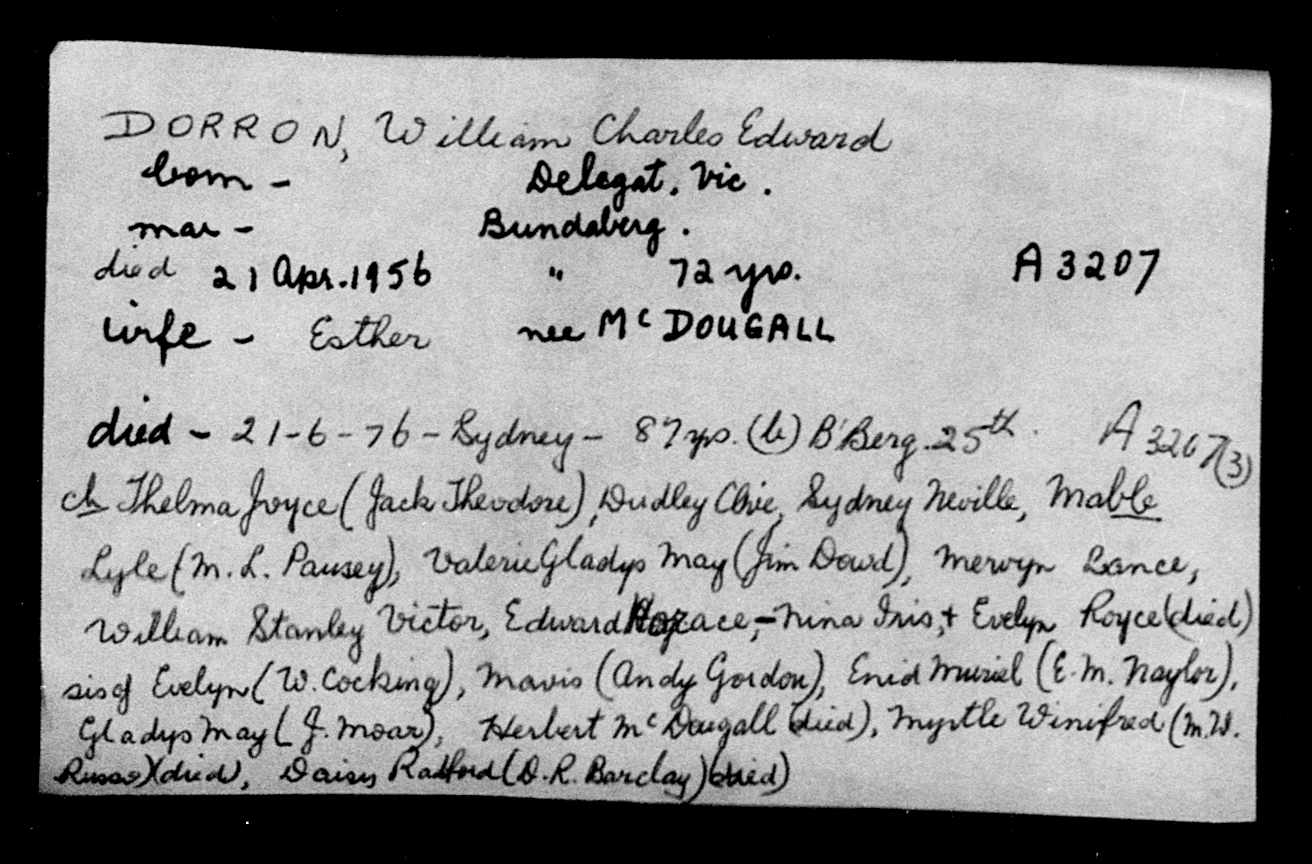 DORRON, William Charles Edward
born - Delegat. Vic.
mar - Bundaberg.
died 21 Apr. 1956 " 72 yrs. A3207
wife - Esther nee McDOUGALL
died - 21-6-76 - Sydney - 87 yrs. (b) B'Berg. 25th. A3207(3)
ch Thelma Joyce (Jack Theodore), Dudley Clive, Sydney Neville, Mable
Lyle (M. L. Pausey), Valerie Gladys May (Jim Dowd), Mervyn Lance,
William Stanley Victor, Edward Horace, - Nina Iris, + Evelyn Royce (died)
sis of Evelyn (W. Cocking), Mavis (Andy Gordon), Enid Muriel (E. M. Naylor),
Gladys May (J. Moar), Herbert McDougall (died), Myrtle Winifred (M.W.
Russo) (died), Daisy Radford (D. R. Barclay) (died)